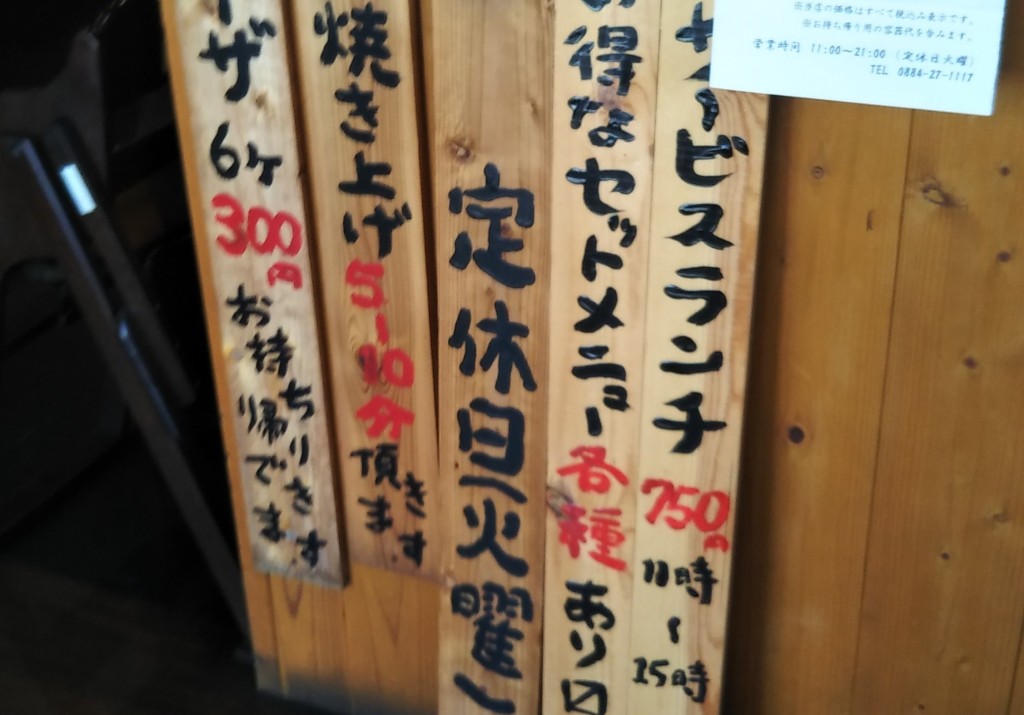 ※当店の価格はすべて税込み表示です。
※お持ち帰り用の容器代を含みます。
営業時間 11:00～21:00 (定休日火曜)
TEL 0884-27-1117
サービスランチ 750円 11時～15時
お得なセットメニュー各種あり〼
定休日(火曜)
焼き上げ 5～10分頂きます
ザ 6ヶ 300円 お持ち帰りできます